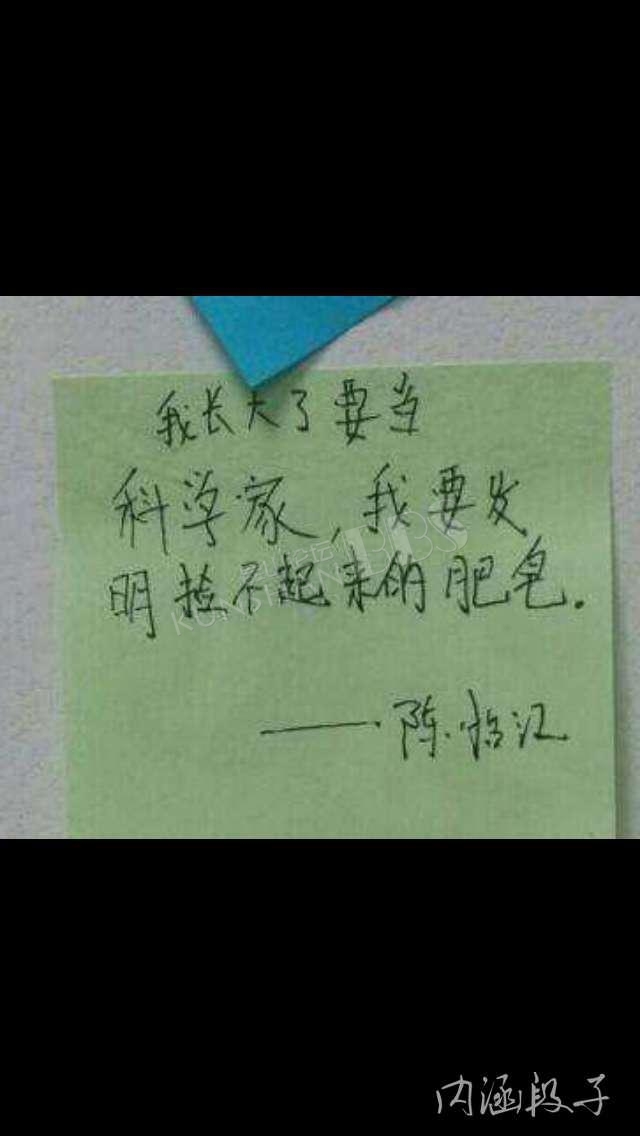 我长大了要当
科学家,我要发
明捡不起来的肥皂.
——陈临江
内涵段子